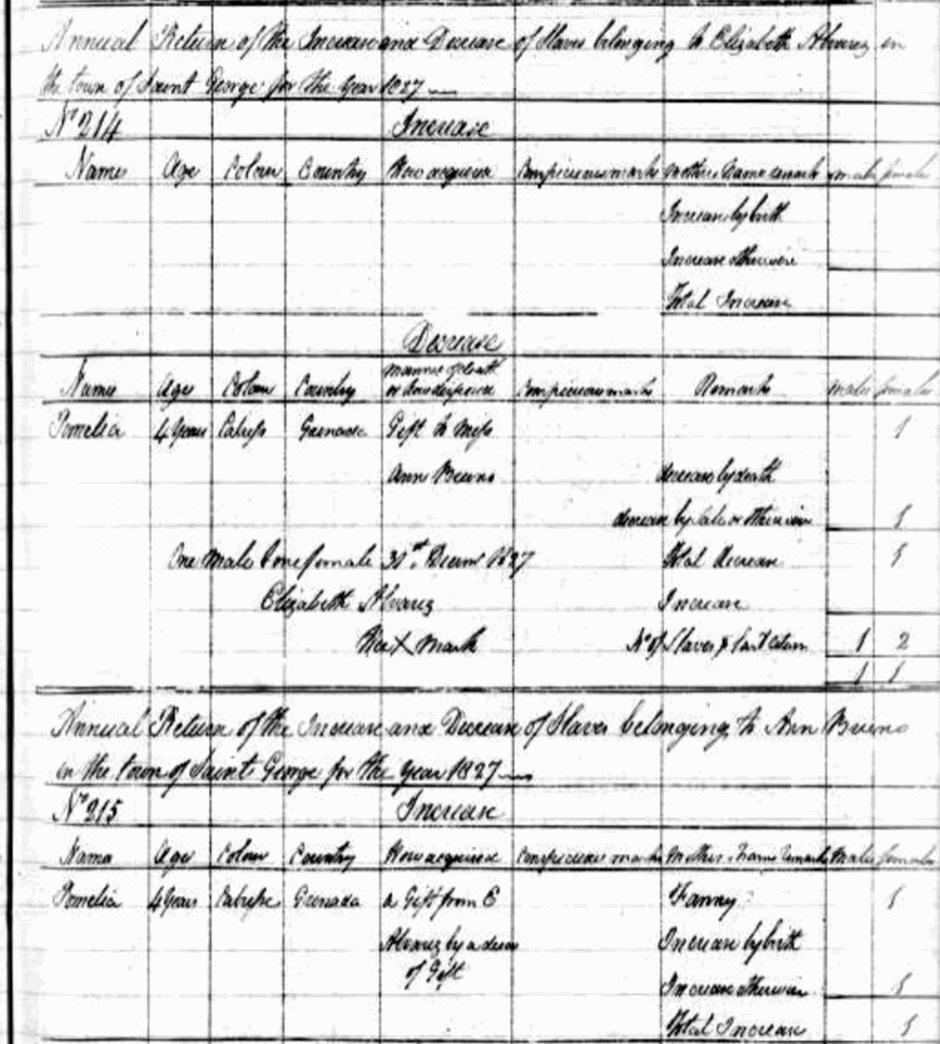 Annual Return of the Increase and Decrease of Slaves belonging to Elizabeth Alvarez in
the town of Saint George for the Year 1827
No 214 Increase
Name Age Colour Country How acquired Conspicuous marks Mothers Name remarks male female
Increase by birth
Increase otherwise
Total Increase
Decrease
Name Age Colour Country Manner of death or how disposed Conspicuous marks Remarks males females
Pomelia 4 Years Cabress Grenada Gift to Miss 1
Ann Bruno decrease by death
decrease by Sale or otherwise 1
One Male & one female 31st Decemr 1827 Total decrease 1
Elizabeth Alvarez Increase
Her X Mark No of Slaves p last return 1 2
1 1
Annual Return of the Increase and Decrease of Slaves belonging to Ann Bruno
in the town of Saint George for the Year 1827
No 215 Increase
Name Age Colour Country How acquired Conspicuous marks Mothers Name Remarks Males females
Pomelia 4 Years Cabresse Grenada a Gift from E Fanny 1
Alvarez by a deed Increase by birth
of Gift Increase otherwise 1
Total Increase 1